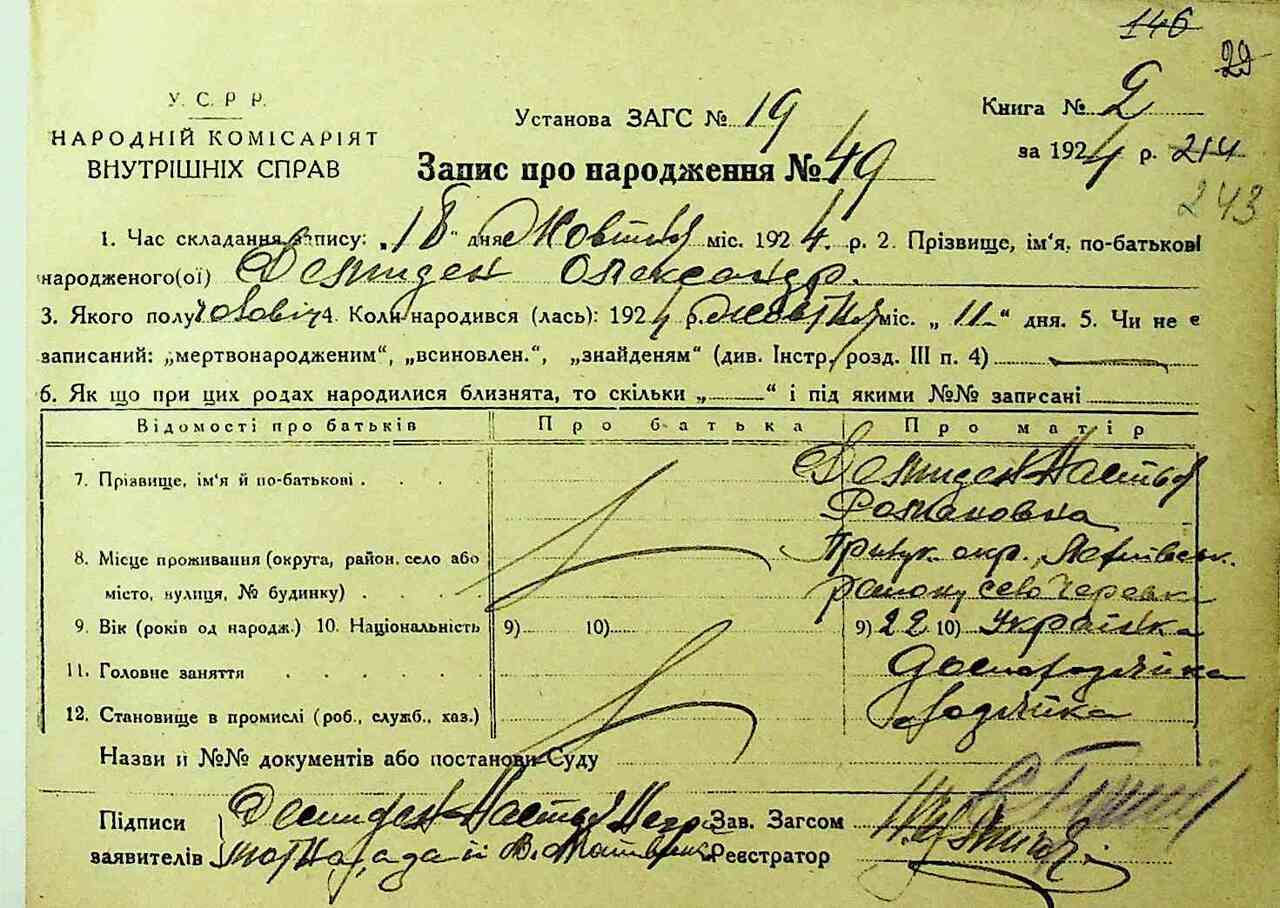 146
29
У. С. Р. Р.
НАРОДНІЙ КОМІСАРІЯТ
ВНУТРІШНІХ СПРАВ
Установа ЗАГС № 19
Книга № 2
за 1924 р. 214
Запис про народження № 49
243
1. Час складання запису: „18" дня Жовтня міс. 1924. р. 2. Прізвище, ім'я, по-батькові
народженого(ої) Демиден Олександр.
3. Якого полу чоловіч 4. Коли народився (лась): 1924 р. Жовтня міс. „11" дня. 5. Чи не є
записаний: „мертвонародженим", „всиновлен.", „знайденям" (див. Інстр. розд. III п. 4)
6. Як що при цих родах народилися близнята, то скільки „ " і під якими №№ записані
Відомості про батьків Про батька Про матір
7. Прізвище, ім'я й по-батькові . . . Демиден Настья
Романовна
8. Місце проживання (округа, район, село або Прилук. окр.
місто, вулиця, № будинку) . . . . району село
9. Вік (років од народж.) 10. Національність 9) 10) 9) 22 10) Українка
11. Головне заняття . . . . . .
12. Становище в промислі (роб., служб., хаз.)
Назви й №№ документів або постанови Суду
Підписи Демиден Настья Зав. Загсом
заявителів Реєстратор